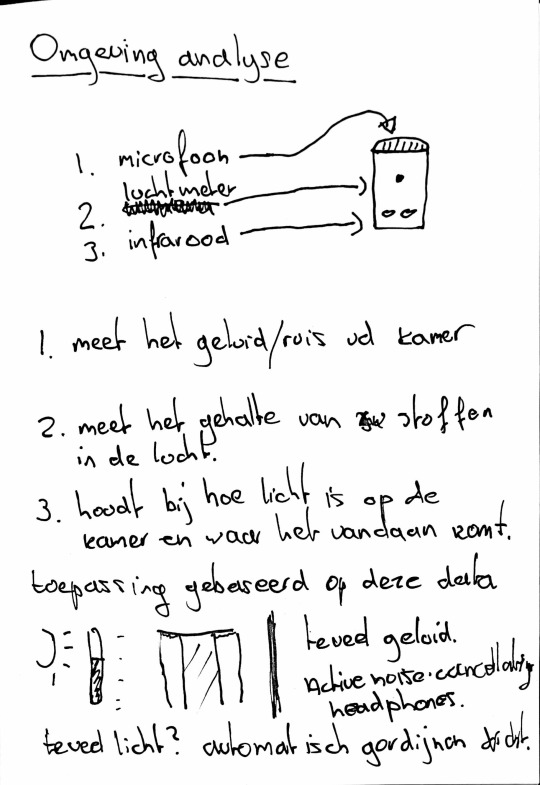 Omgeving analyse
1. microfoon
luchtmeter
2.
3. infrarood
1. meet het geluid/ruis vd kamer
2. meet het gehalte van stoffen
in de lucht.
3. houdt bij hoe licht is op de
kamer en waar het vandaan komt.
toepassing gebaseerd op deze data
teveel geluid.
Active noise-cancellating
headphones.
teveel licht? automatisch gordijnen dicht.